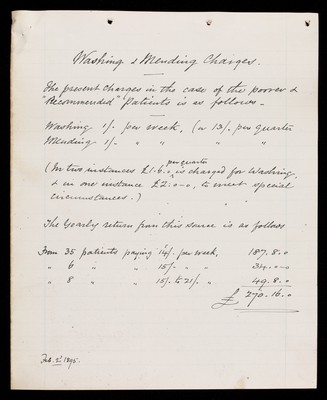 Washing & Mending Charges.
The present charges in the case of the poorer &
"Recommended" Patients is as follows -
Washing 1/. per week, (or 13/. per quarter
Mending 1/. " " " "
(In two instances £1.6. per quarter is charged for Washing,
& in one instance £2.0.0, to meet special
circumstances.)
The Yearly return from this source is as follows
From 35 patients paying 14/. per week, 187.8.0
" 6 " " 15/. " " 34.0.0
" 8 " " 15/. to 21/. " 49.8.0
£270.16.0
Feb. 1st 1895.